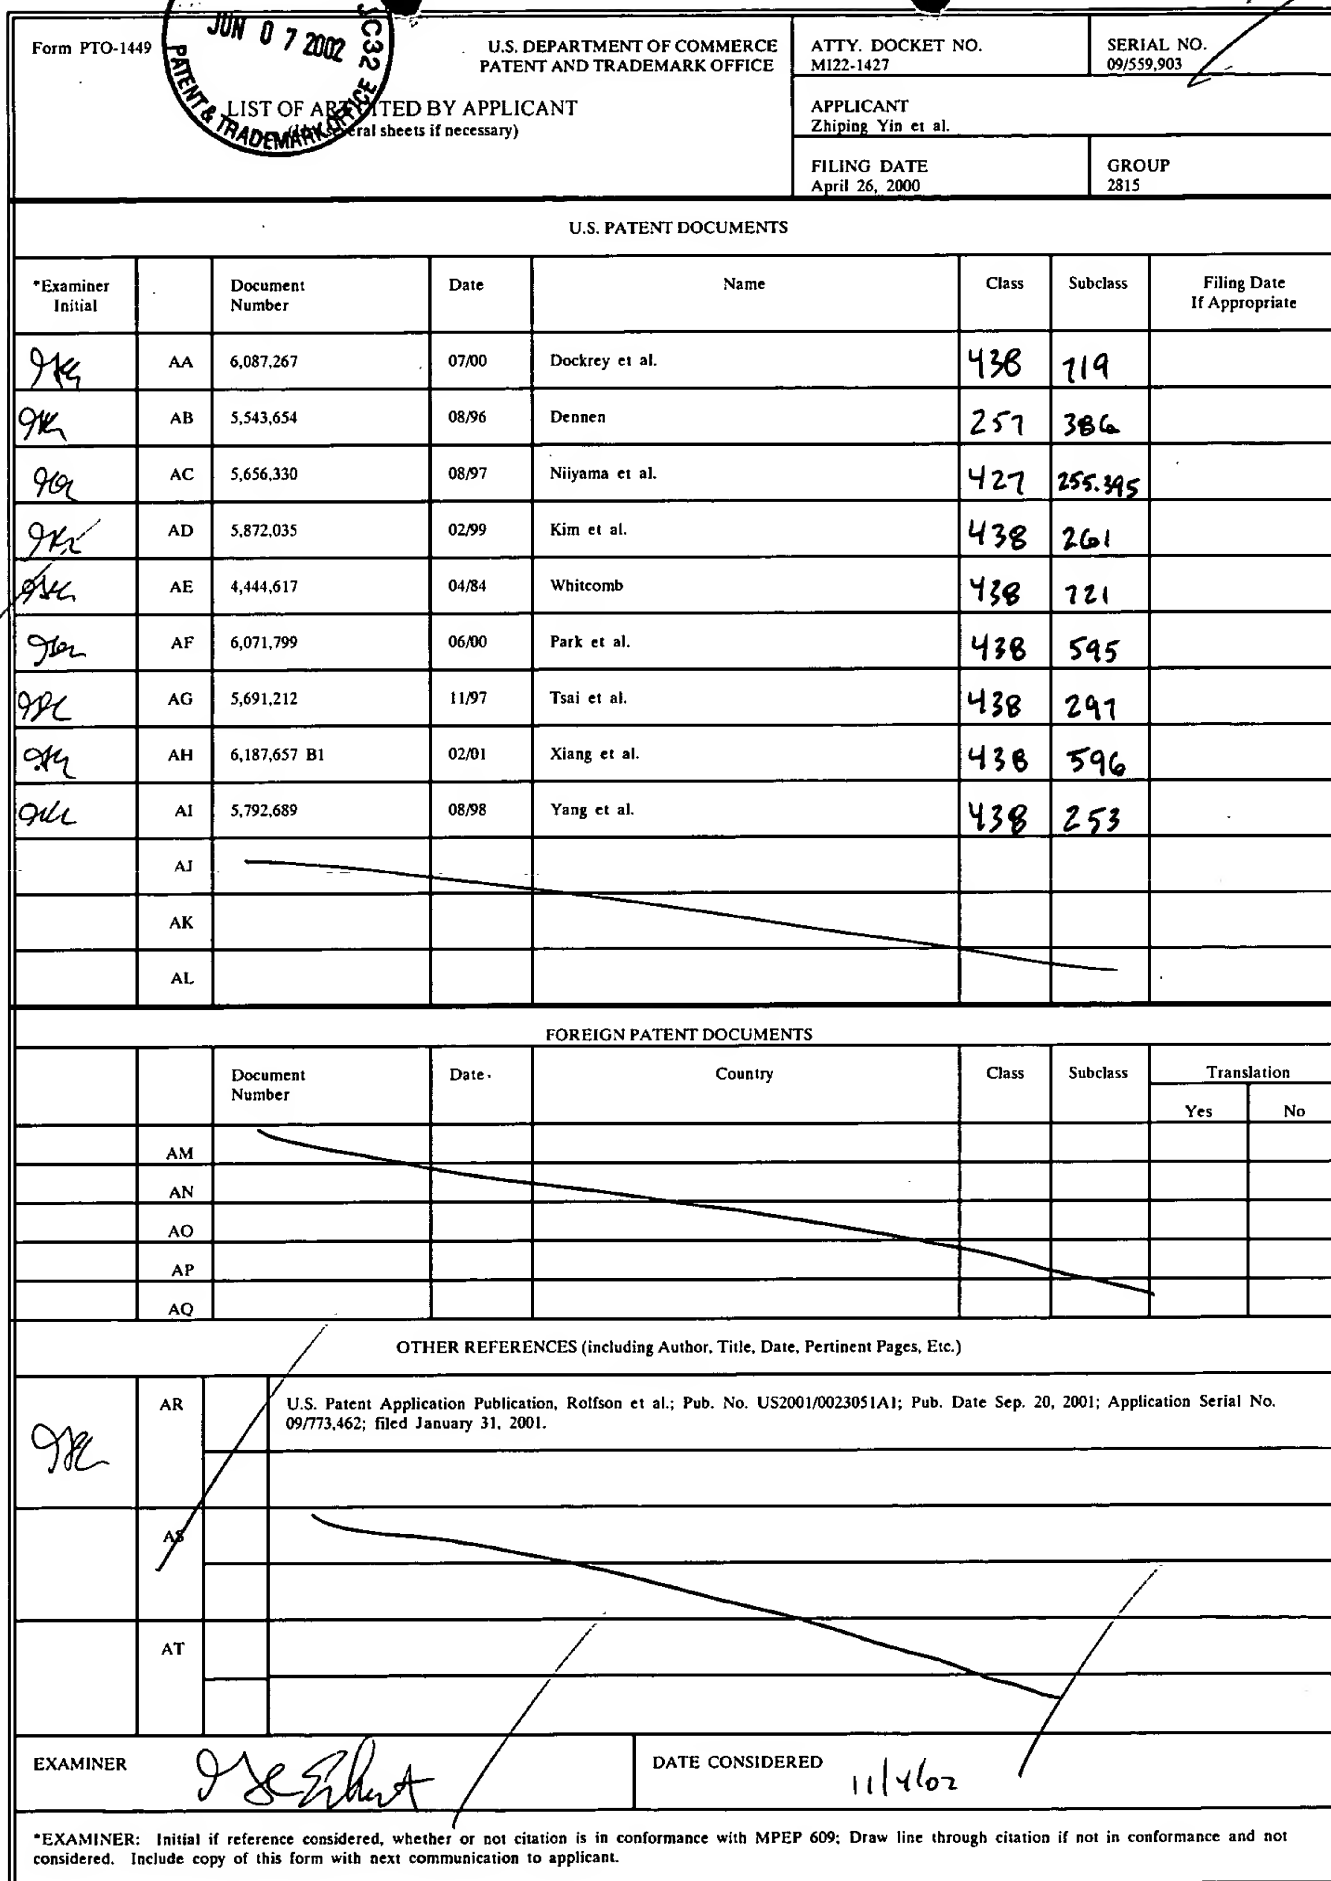 JUN 07 2002
JC32
PATENT & TRADEMARK OFFICE
Form PTO-1449
U.S. DEPARTMENT OF COMMERCE
PATENT AND TRADEMARK OFFICE
LIST OF AR CITED BY APPLICANT
several sheets if necessary)
ATTY. DOCKET NO.
MI22-1427
SERIAL NO.
09/559,903
APPLICANT
Zhiping Yin et al.
FILING DATE
April 26, 2000
GROUP
2815
U.S. PATENT DOCUMENTS
*Examiner Initial Document Number Date Name Class Subclass Filing Date If Appropriate
AA 6,087,267 07/00 Dockrey et al. 438 719
AB 5,543,654 08/96 Dennen 257 386
AC 5,656,330 08/97 Niiyama et al. 427 255.395
AD 5,872,035 02/99 Kim et al. 438 261
AE 4,444,617 04/84 Whitcomb 438 721
AF 6,071,799 06/00 Park et al. 438 595
AG 5,691,212 11/97 Tsai et al. 438 297
AH 6,187,657 B1 02/01 Xiang et al. 438 596
AI 5,792,689 08/98 Yang et al. 438 253
AJ
AK
AL
FOREIGN PATENT DOCUMENTS
Document Number Date Country Class Subclass Translation
Yes No
AM
AN
AO
AP
AQ
OTHER REFERENCES (including Author, Title, Date, Pertinent Pages, Etc.)
AR U.S. Patent Application Publication, Rolfson et al.; Pub. No. US2001/0023051A1; Pub. Date Sep. 20, 2001; Application Serial No.
09/773,462; filed January 31, 2001.
AS
AT
EXAMINER
DATE CONSIDERED 11/4/02
*EXAMINER: Initial if reference considered, whether or not citation is in conformance with MPEP 609; Draw line through citation if not in conformance and not
considered. Include copy of this form with next communication to applicant.